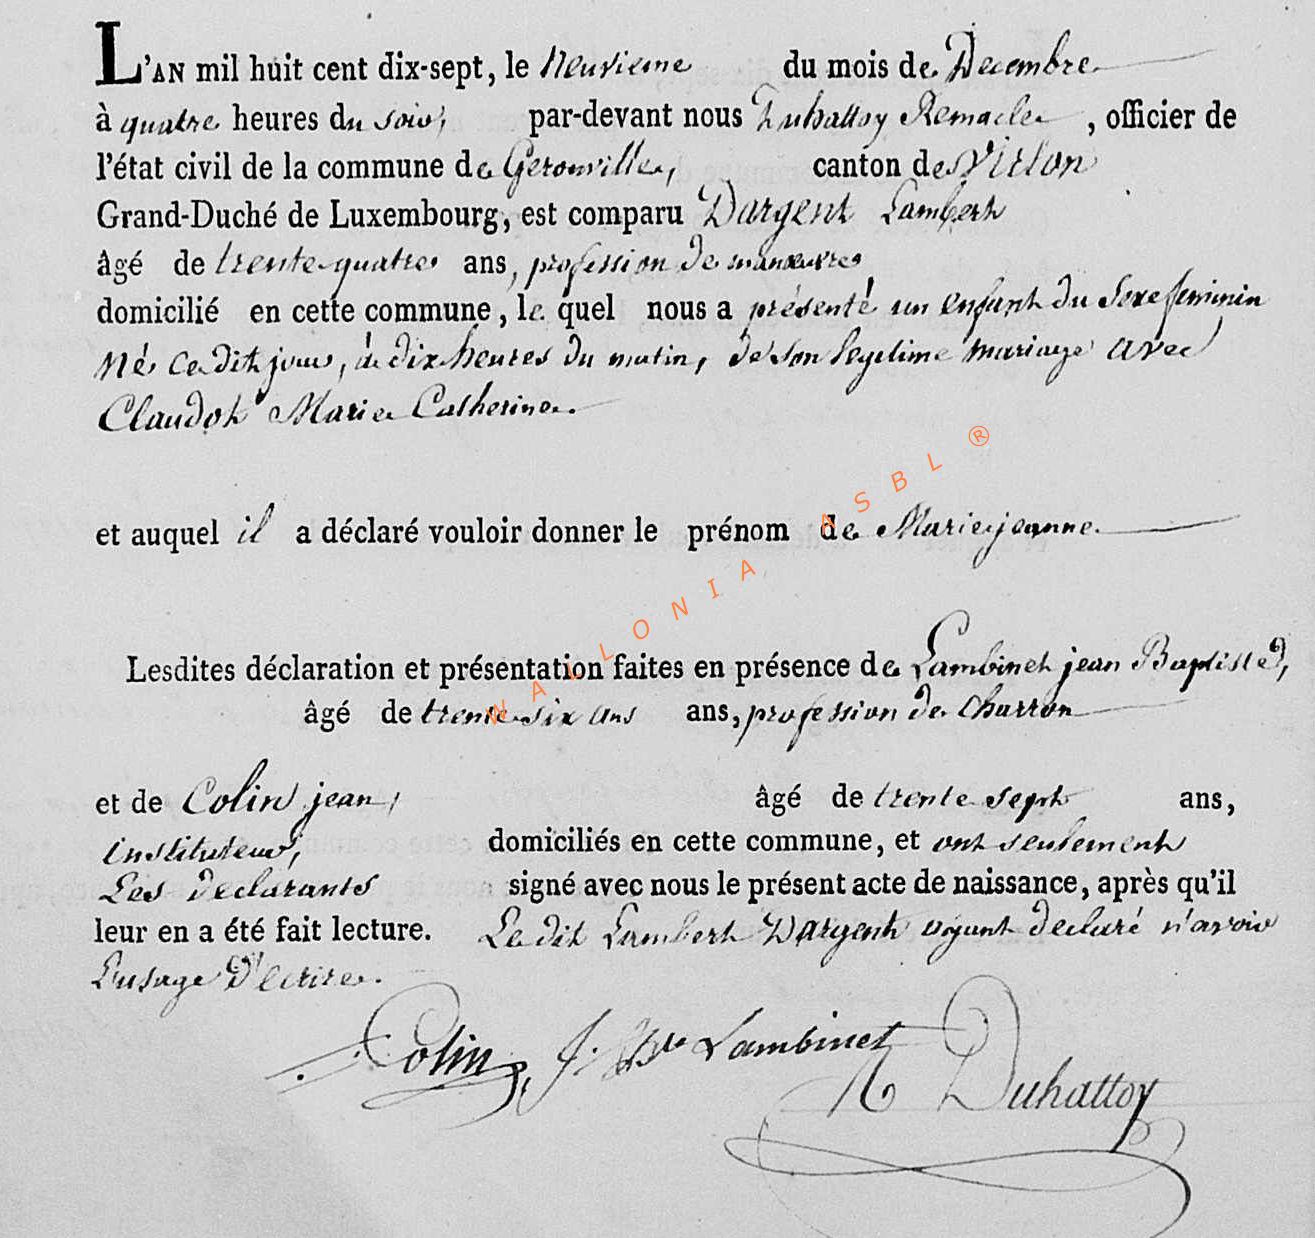 L'AN mil huit cent dix-sept, le neuvieme du mois de Decembre
à quatre heures du soir, par-devant nous Duhattoy Remacle , officier de
l'état civil de la commune de Gerouville, canton de Virton
Grand-Duché de Luxembourg, est comparu Dargent Lambert
âgé de trente quatre ans, profession de manœuvre
domicilié en cette commune, le quel nous a présenté un enfant du Sexe feminin
Né ce dit jour, à dix heures du matin, de son legitime mariage avec
Claudot Marie Catherine.
et auquel il a déclaré vouloir donner le prénom de Marie jeanne.
Lesdites déclaration et présentation faites en présence de Lambinet jean Baptiste,
âgé de trente six ans ans, profession de charron
et de Colin jean, âgé de trente sept ans,
instituteur, domiciliés en cette commune, et ont seulement
Les declarants signé avec nous le présent acte de naissance, après qu'il
leur en a été fait lecture. Le dit Lambert Dargent ayant declaré n'avoir
L'usage d'ecrire.
Colin J. Bte Lambinet
R Duhattoy
WALLONIA ASBL ®